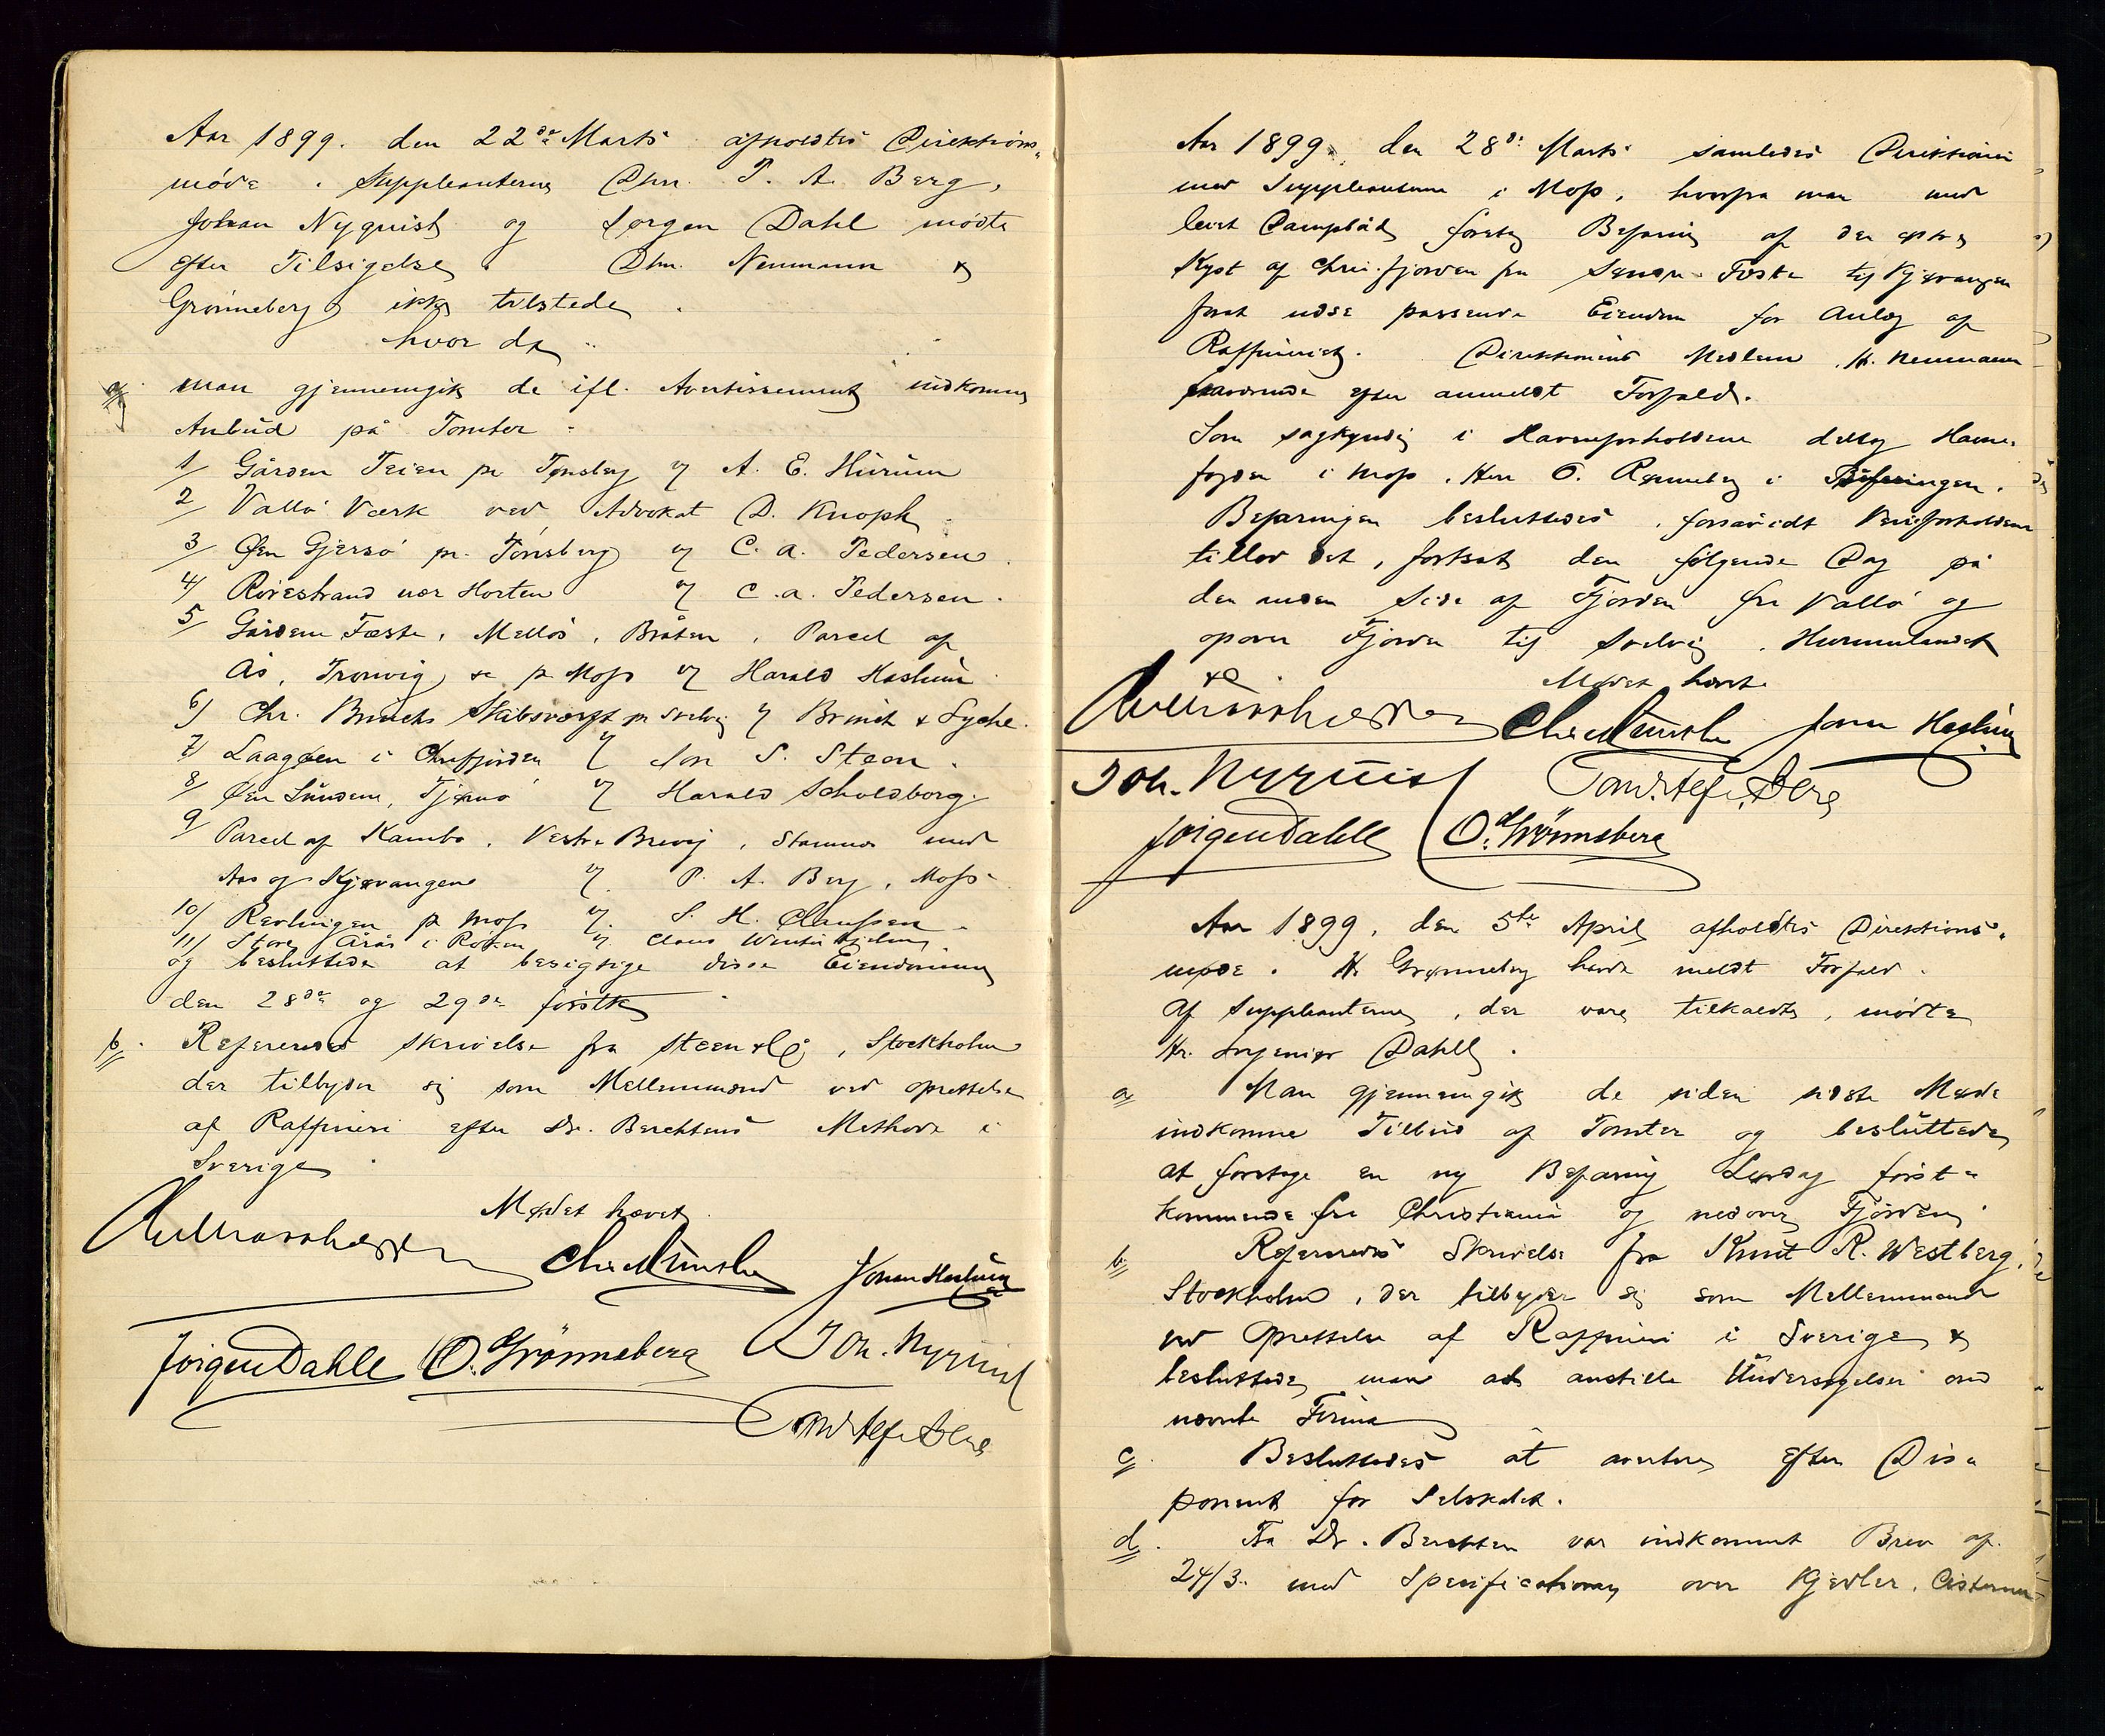 Aar 1899. den 22de Marts afholdtes Direktions-
møde. Suppleanterne Dhrr. P. A. Berg,
Johan Nyquist og Jørgen Dahl mødte
efter Tilsigelse. Dhrr. Neumann &
Grønneberg ikke tilstede.
hvor da
a/ man gjennemgik de ifl. Avertissement indkomne
Anbud på Tomter:
1/ Gården Teien pr Tønsberg v/ A. E. Hürüm
2/ Vallö Værk ved Advokat D. Knoph
3/ Øen Gjersö pr. Tönsberg v/ C. A. Pedersen.
4/ Rörestrand nær Horten v/ C. A. Pedersen.
5/ Gårdene Fæste, Mellös, Bråten, Parcel af
Ås, Tronvig, se pr Moss v/ Harald Haslum
6/ Chr. Brinchs Skibsværft pr Svelvig v/ Brinch & Lyche.
7/ Laagøen i Chrfjorden v/ Jon S. Steen.
8/ Øen Lindene, Tjømö v/ Harald Scholdborg.
9/ Parcel af Kambo, Vestre Brevig, Stamnes med
Aas og Kjærvangene v/ P. A. Berg, Moss
10/ Revlingen pr Moss v/ S. H. Claussen.
11/ Store Årås i Röken v/ Claus Winter Hjelm.
og besluttede at besigtige disse Eiendomme
den 28de og 29de förstk.
b/. Refereredes Skrivelse fra Steen & Co, Stockholm
der tilbyder sig som Mellemmand ved oprettelse
af Raffineri efter Dr. Berchtens Methode i
Sverige.
Mødet hævet.
Chr Münster Johan Haslum
Jörgen Dahll O. Grönneberg Joh. Nyquist
Aar 1899, den 28de Marts samledes Direktionen
med Suppleanterne i Moss, hvorfra man med
leiet Dampbåd foretog Befaring af den østre
Kyst af Chr.fjorden fra Søndre Fæste til Kjærvangen
forat udse passende Eiendom for Anlæg af
Raffineriet. Direktionens Medlem, Hr. Neumann
fraværende efter anmeldt Forfald.
Som sagkyndig i Havneforholdene deltog Havne-
fogden i Moss, Herr O. Rønneberg i Befaringen.
Befaringen besluttedes, forsåvidt Veirforholdene
tillod det, fortsat den følgende Dag på
den anden Side af Fjorden fra Vallö og
opover Fjorden til Svelvig, Hurumlandet
&c Mødet hævet.
Chr Münster Johan Haslum
Joh. Nyquist
Jörgen Dahll O. Grönneberg
Aar 1899, den 5te April afholdtes Direktions-
møde. Hr. Grønneberg havde meldt Forfald.
Af Suppleanterne, der vare tilkaldte, mödte
Hr. Ingeniør Dahll.
a/ Man gjennemgik de siden sidste Møde
indkomne Tilbud af Tomter og besluttede
at foretage en ny Befaring Lørdag först-
kommende fra Christiania og nedover Fjorden.
b/ Refereredes Skrivelse fra Knut R. Westberg,
Stockholm, der tilbyder sig som Mellemmand
ved Oprettelse af Raffineri i Sverige &
besluttede man at anstille Undersøgelser om
nævnte Firma
c/. Besluttedes at avertere efter Dis-
ponent for Selskabet.
d/. Fra Dr. Berchten var indkommet Brev af
24/3. med Specificationer over Kjedler, Cisterner